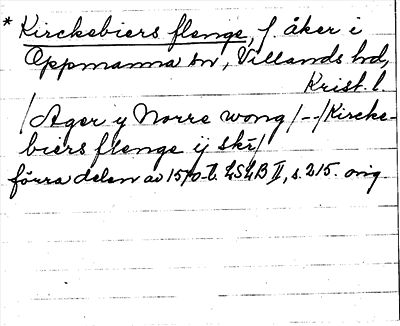 * Kirckebiers flenge, f. åker i
Oppmanna sn, Villands hd,
Krist. l.
/Ager y Norre wong/--/Kircke-
biers flenge ij skr/
förra delen av 1570-t. LSLB II, s. 215. orig